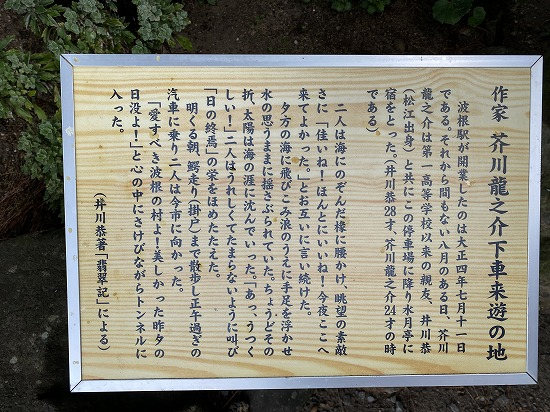 作家 芥川龍之介下車来遊の地
波根駅が開業したのは大正四年七月十一日
である。それから間もない八月のある日、芥川
龍之介は第一高等学校以来の親友、井川恭
（松江出身）と共にこの停車場に降り水月亭に
宿をとった。（井川恭28才、芥川龍之介24才の時
である）
二人は海にのぞんだ椽に腰かけ、眺望の素敵
さに「佳いね！ほんとにいいね！今夜ここへ
来てよかった。」とお互いに言い続けた。
夕方の海に飛びこみ浪のうえに手足を浮かせ
水の思うままに揺さぶられていた。ちょうどその
折、太陽は海の涯に沈んでいった。「あっ、うつく
しい！」二人はうれしくてたまらないように叫び
「日の終焉」の栄をほめたたえた。
明くる朝、鰐走り（掛戸）まで散歩し正午過ぎの
汽車に乗り二人は今市に向かった。
「愛すべき波根の村よ！美しかった昨夕の
日没よ！」と心の中にさけびながらトンネルに
入った。
（井川恭著「翡翠記」による）